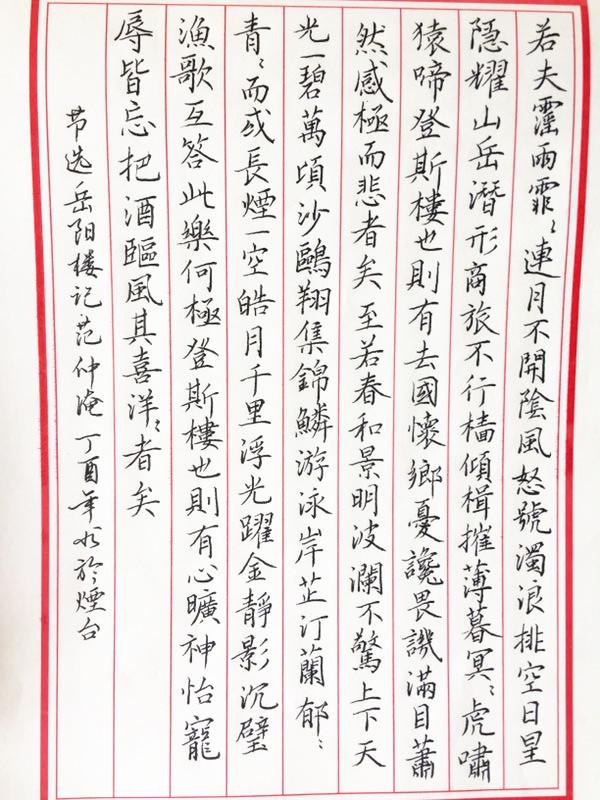 若夫霪雨霏〻連月不開陰風怒號濁浪排空日星
隱耀山岳潛形商旅不行檣傾楫摧薄暮冥〻虎嘯
猿啼登斯樓也則有去國懷鄉憂讒畏譏滿目蕭
然感極而悲者矣至若春和景明波瀾不驚上下天
光一碧萬頃沙鷗翔集錦鱗游泳岸芷汀蘭郁〻
青〻而或長煙一空皓月千里浮光躍金靜影沉璧
漁歌互答此樂何極登斯樓也則有心曠神怡寵
辱皆忘把酒臨風其喜洋〻者矣
节选岳阳楼记范仲淹丁酉年水於煙台